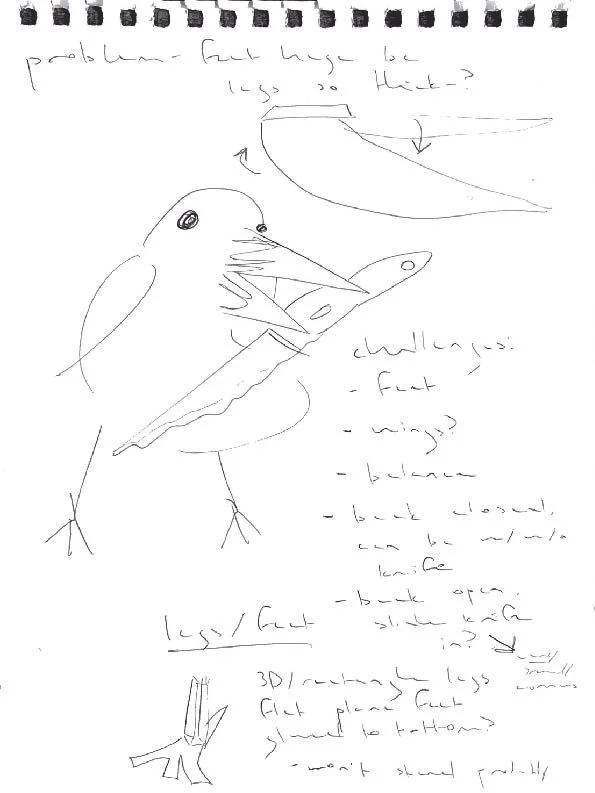 problem - feet huge bc
legs so thick-?
challenges:
- feet
- wings?
- balance
- beak closed,
can be w/ w/o
knife
- beak open,
slide knife
in?
legs/feet
small
3D/rectangle legs
flat plane feet
glued to bottom?
- won't stand probably